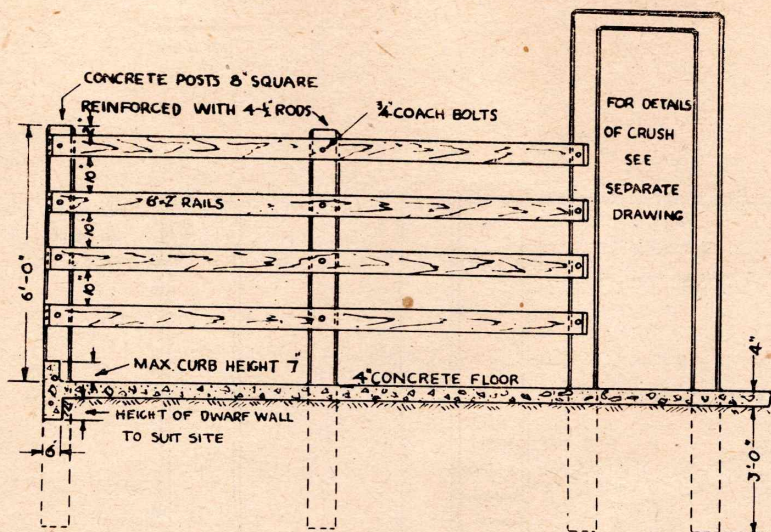 CONCRETE POSTS 8" SQUARE
REINFORCED WITH 4-½" RODS
¾" COACH BOLTS
FOR DETAILS
OF CRUSH
SEE
SEPARATE
DRAWING
10"
6"×2" RAILS
10"
10"
6'-0"
MAX. CURB HEIGHT 7"
4" CONCRETE FLOOR
4"
HEIGHT OF DWARF WALL
TO SUIT SITE
6"
3'-0"